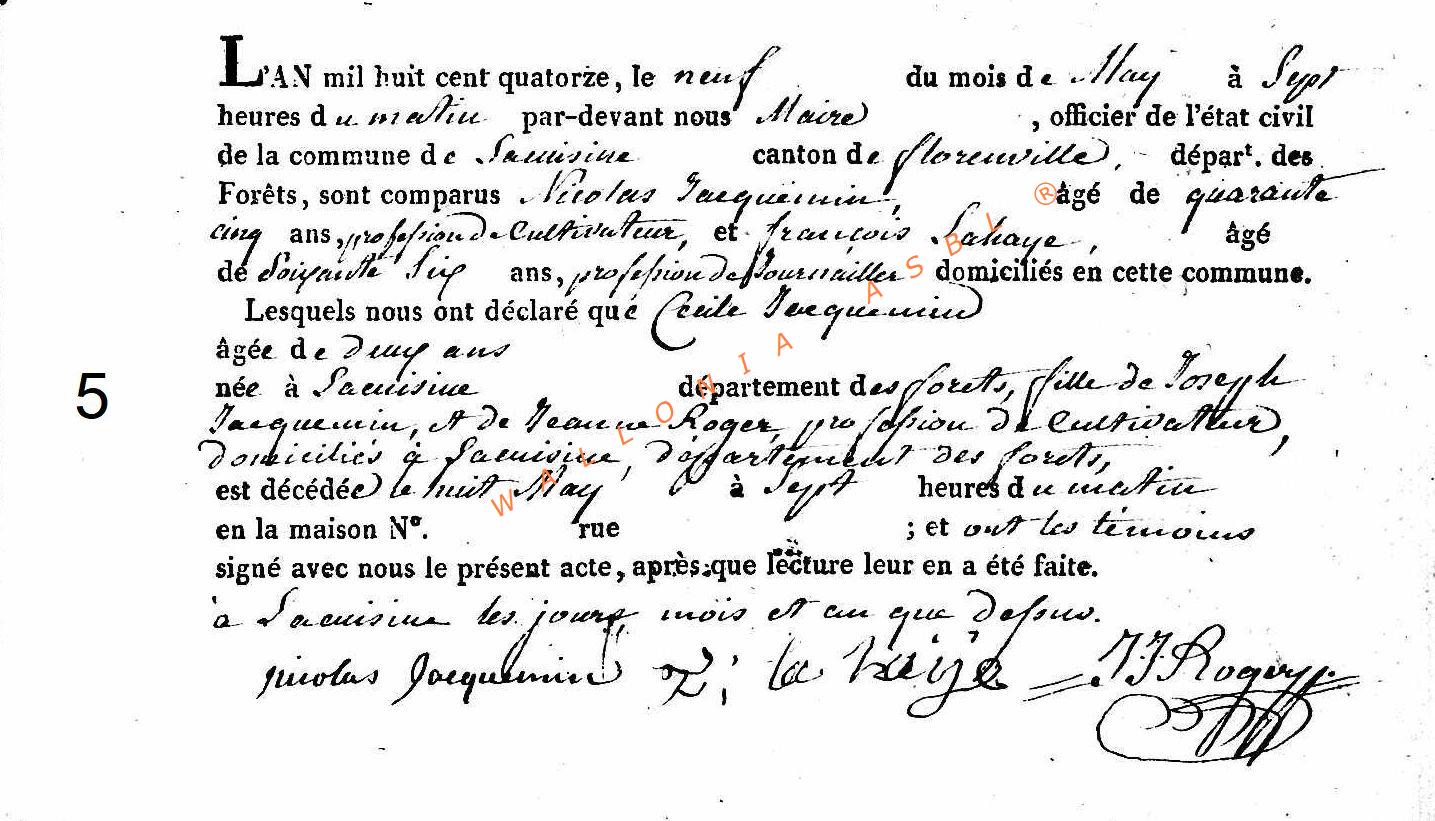 L'AN mil huit cent quatorze, le neuf du mois de May à Sept
heures du matin par-devant nous Maire , officier de l'état civil
de la commune de Lacuisine canton de florenville, départ. des
Forêts, sont comparus Nicolas Jacquemin, âgé de quarante
cinq ans, profession de Cultivateur, et françois Lahaye, âgé
de Soixante Six ans, profession de Journailler domiciliés en cette commune.
Lesquels nous ont déclaré que Cecile Jacquemin
âgée de deux ans
5
née à Lacuisine département des forets, fille de Joseph
Jacquemin, et de Jeanne Roger, profession de Cultivateur,
domiciliés à Lacuisine, département des forets,
est décédée le huit May à Sept heures du matin
en la maison Nº. rue ; et ont les témoins
signé avec nous le présent acte, après que lecture leur en a été faite.
à Lacuisine les jours, mois et an que dessus.
nicolas Jacquemin la haije J J Roger
WALLONIA ASBL ®